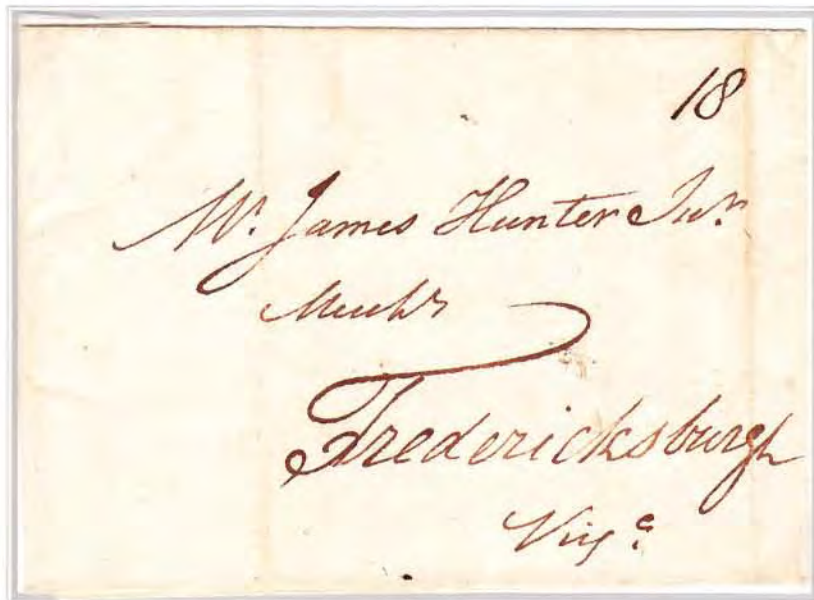 18
Mr. James Hunter Junr.
Mercht
Fredericksburgh
Virga.